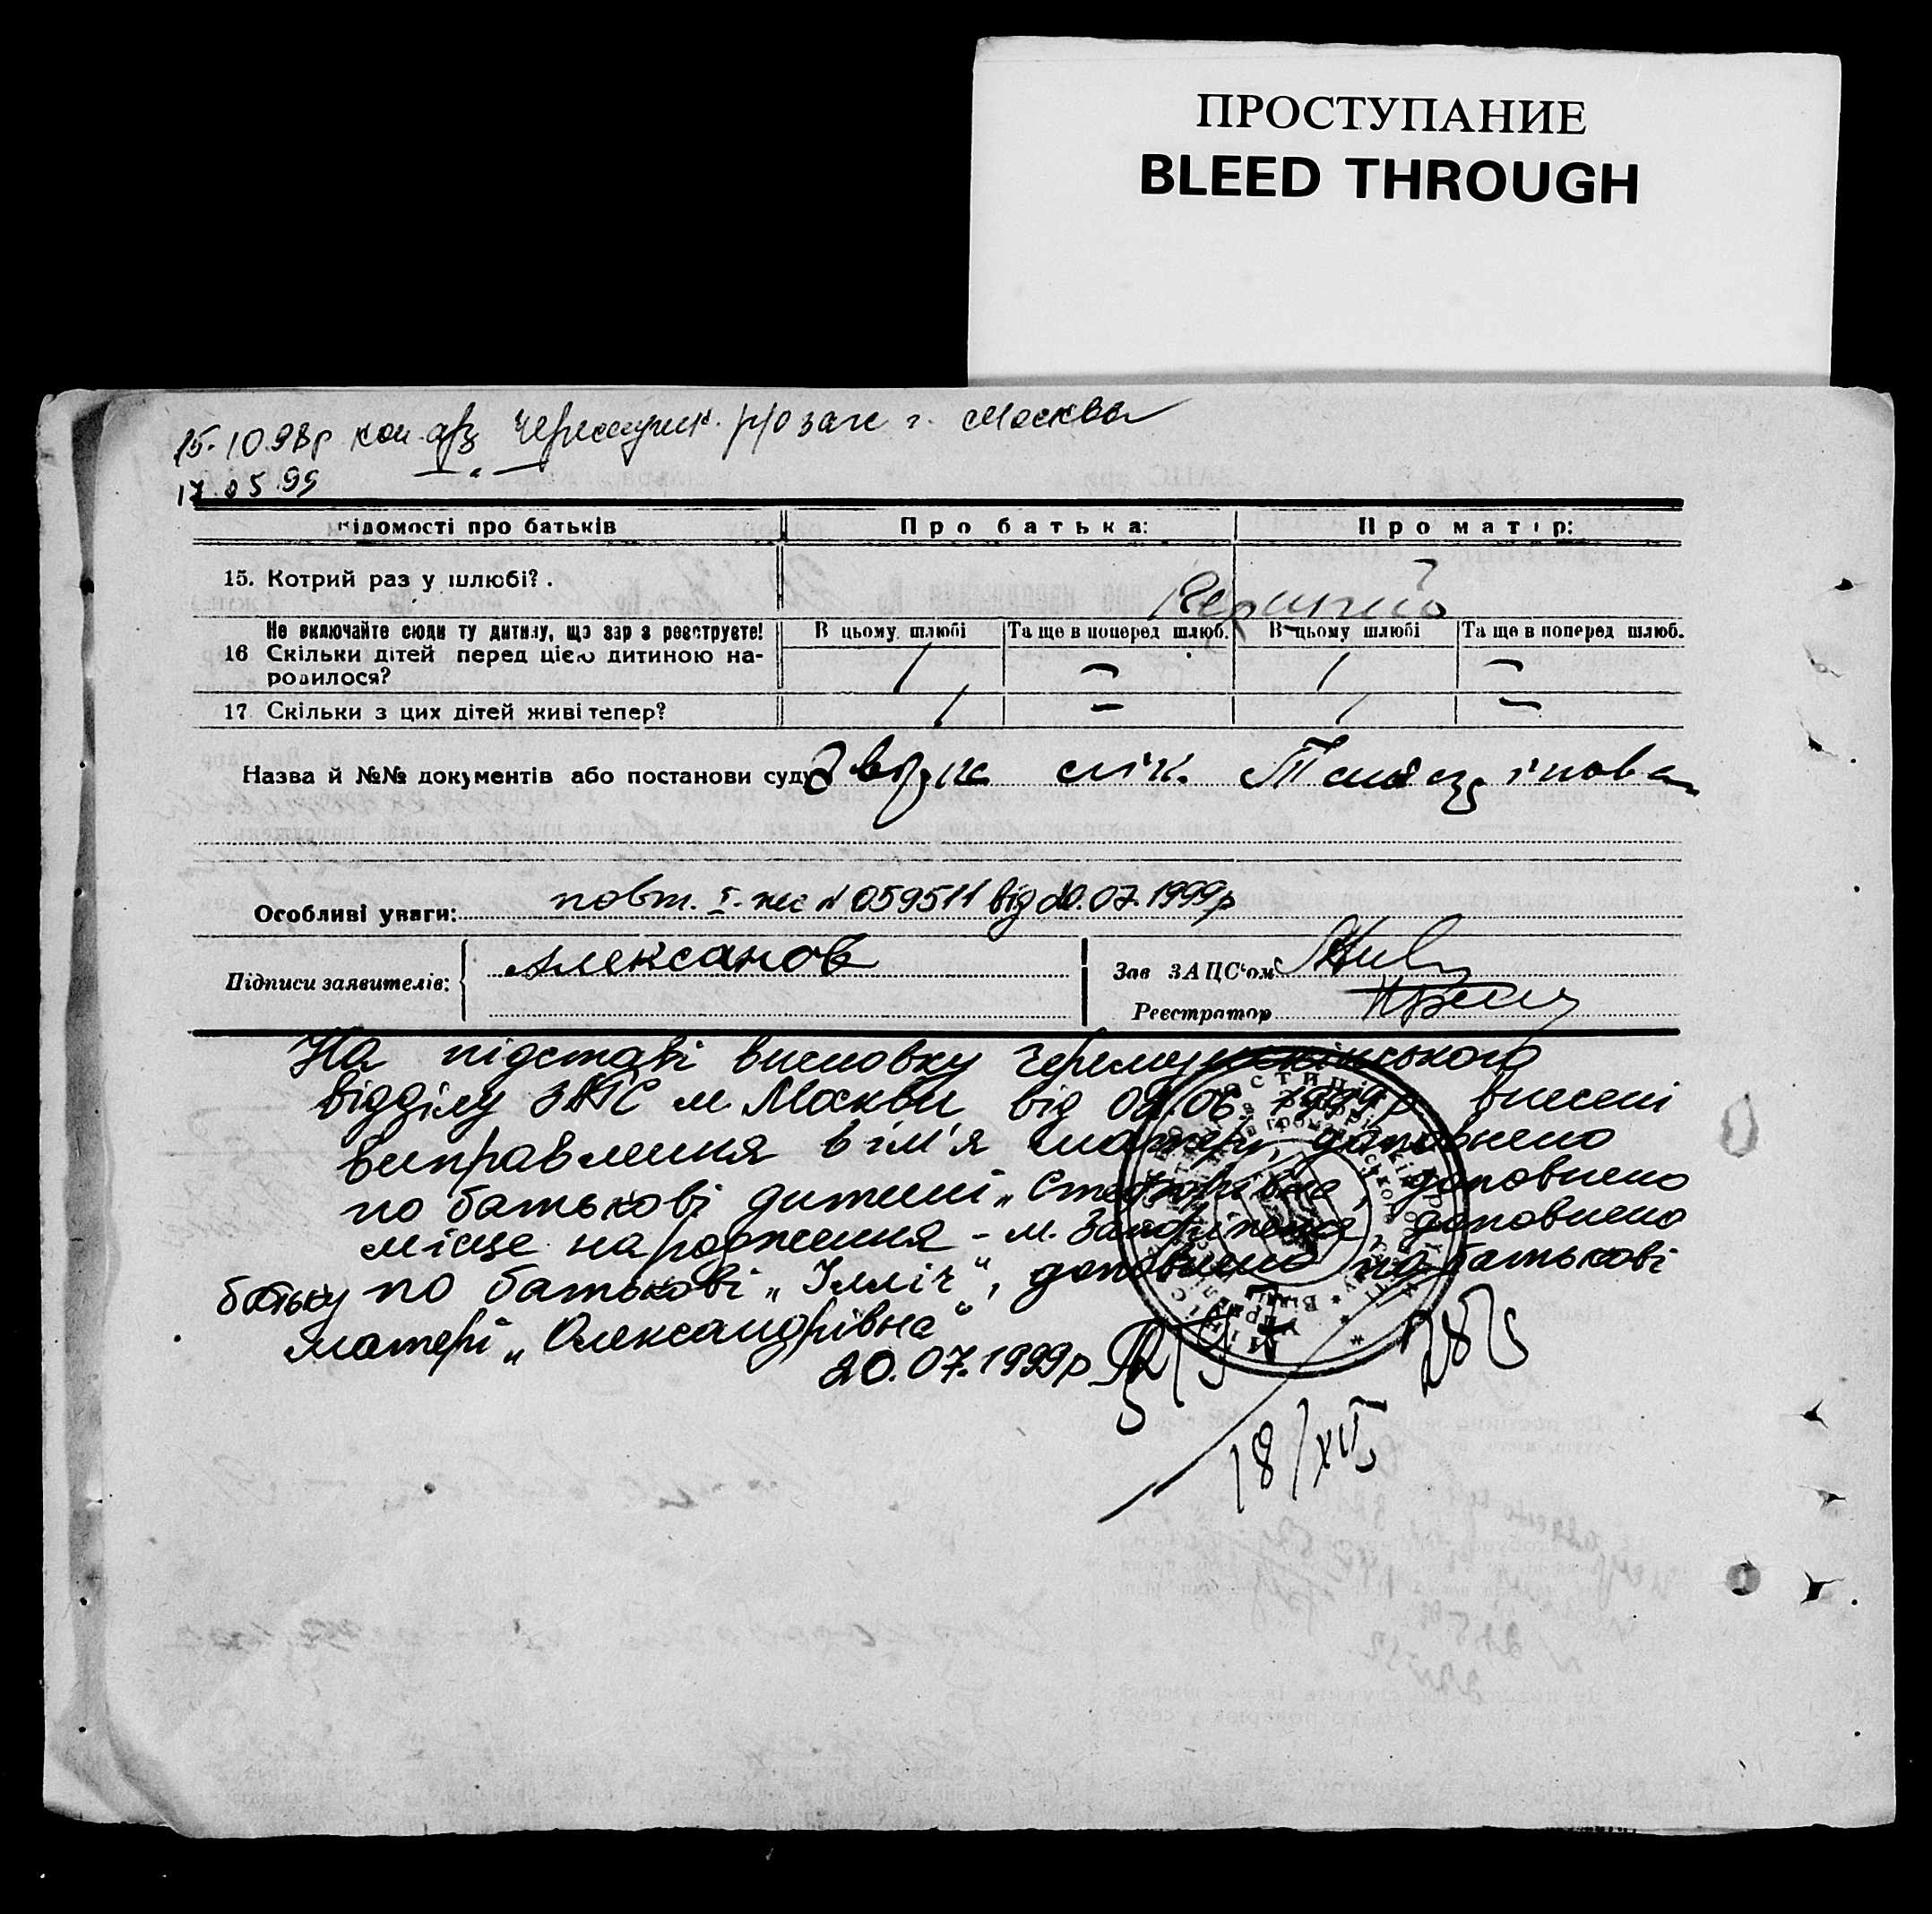 ПРОСТУПАНИЕ
BLEED THROUGH
15.10.98р коп. Черемушк. р/о загс г. Москвы
17.05.99 —"—
відомості про батьків Про батька: Про матір:
15. Котрий раз у шлюбі?. Первый
Не включайте сюди ту дитину, що зар з реєструєте! В цьому шлюбі Та ще в поперед шлюб. В цьому шлюбі Та ще в поперед шлюб.
16 Скільки дітей перед цією дитиною на-
родилося? 1 — 1 —
17. Скільки з цих дітей живі тепер? 1 — 1 —
Назва й №№ документів або постанови суду
Особливі уваги: повт. I-жс № 059511 від 20.07.1999р
Підписи заявителів: Алексанов Зав ЗАЦС'ом
Реєстратор
На підставі висновку Черемушкінського
відділу ЗАГС м. Москви від 09.06.1999р внесені
виправлення в ім'я матері, доповнено
по батькові дитині „
місце народження - м. Запоріжжя, доповнено
батьку по батькові „Ілліч", доповнено по батькові
матері „Олександрівна"
20.07.1999р
18/XII